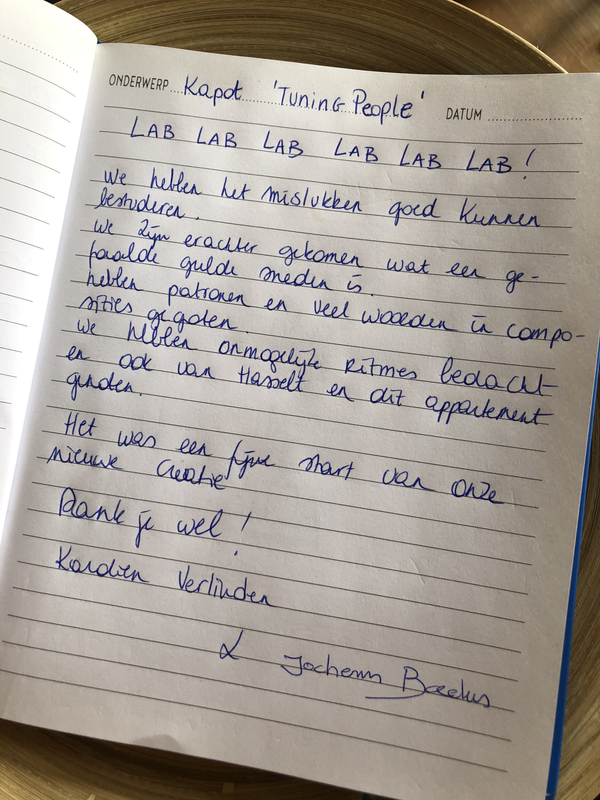 ONDERWERP Kapot 'Tuning People' DATUM
LAB LAB LAB LAB LAB LAB!
We hebben het mislukken goed kunnen
bestuderen.
We zijn erachter gekomen wat een ge-
faalde gulde snede is.
hebben patronen en veel woorden in compo-
sities gegoten.
We hebben onmogelijke ritmes bedacht
en ook van Hasselt en dit appartement
genoten.
Het was een fijne start van onze
nieuwe creatie
Dank je wel!
Karolien Verlinden
& Jochem Baelus